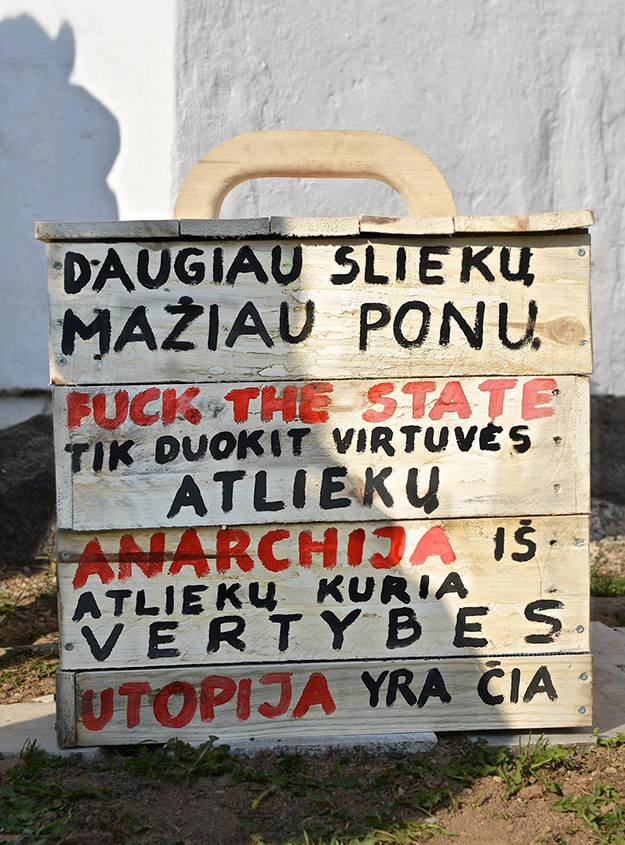 DAUGIAU SLIEKŲ,
MAŽIAU PONŲ.
FUCK THE STATE
TIK DUOKIT VIRTUVĖS
ATLIEKŲ
ANARCHIJA IŠ
ATLIEKŲ KURIA
VERTYBES
UTOPIJA YRA ČIA